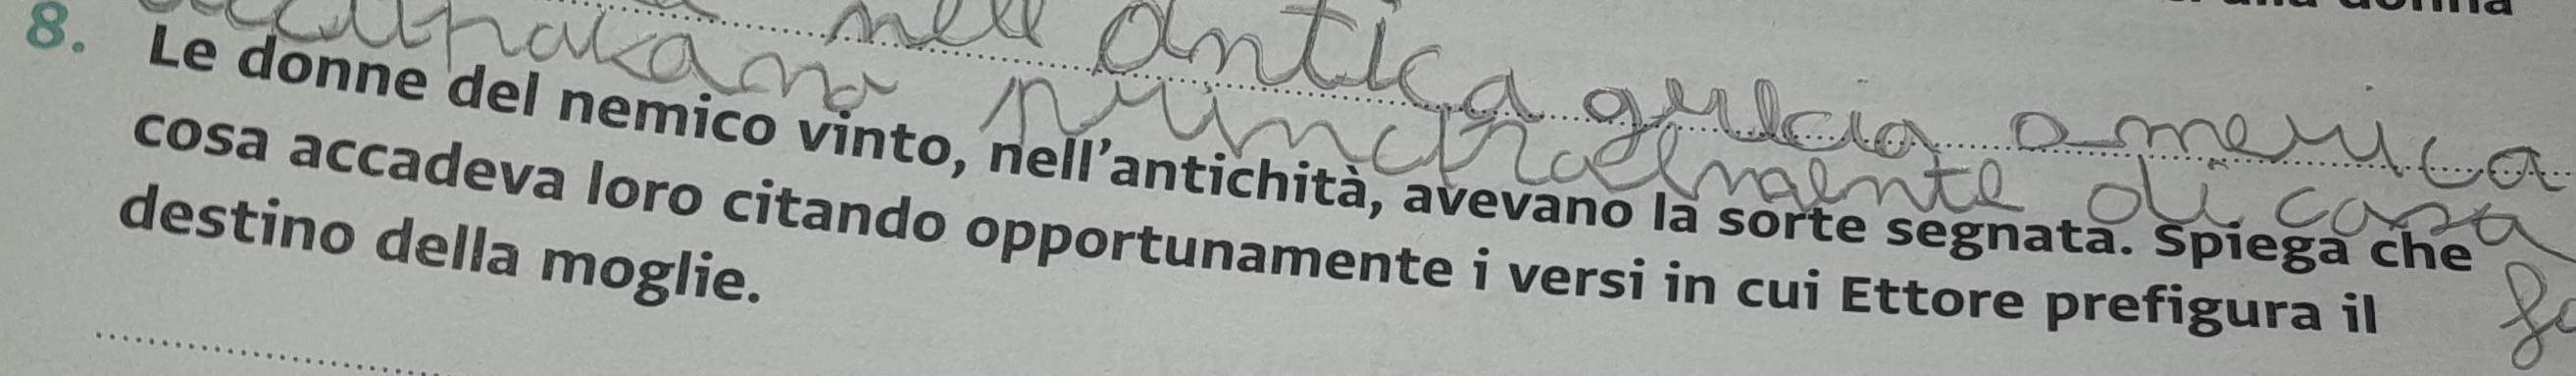 nell'antica grecia omerica
principalmente di casa
8. Le donne del nemico vinto, nell'antichità, avevano la sorte segnata. Spiega che
cosa accadeva loro citando opportunamente i versi in cui Ettore prefigura il
destino della moglie.